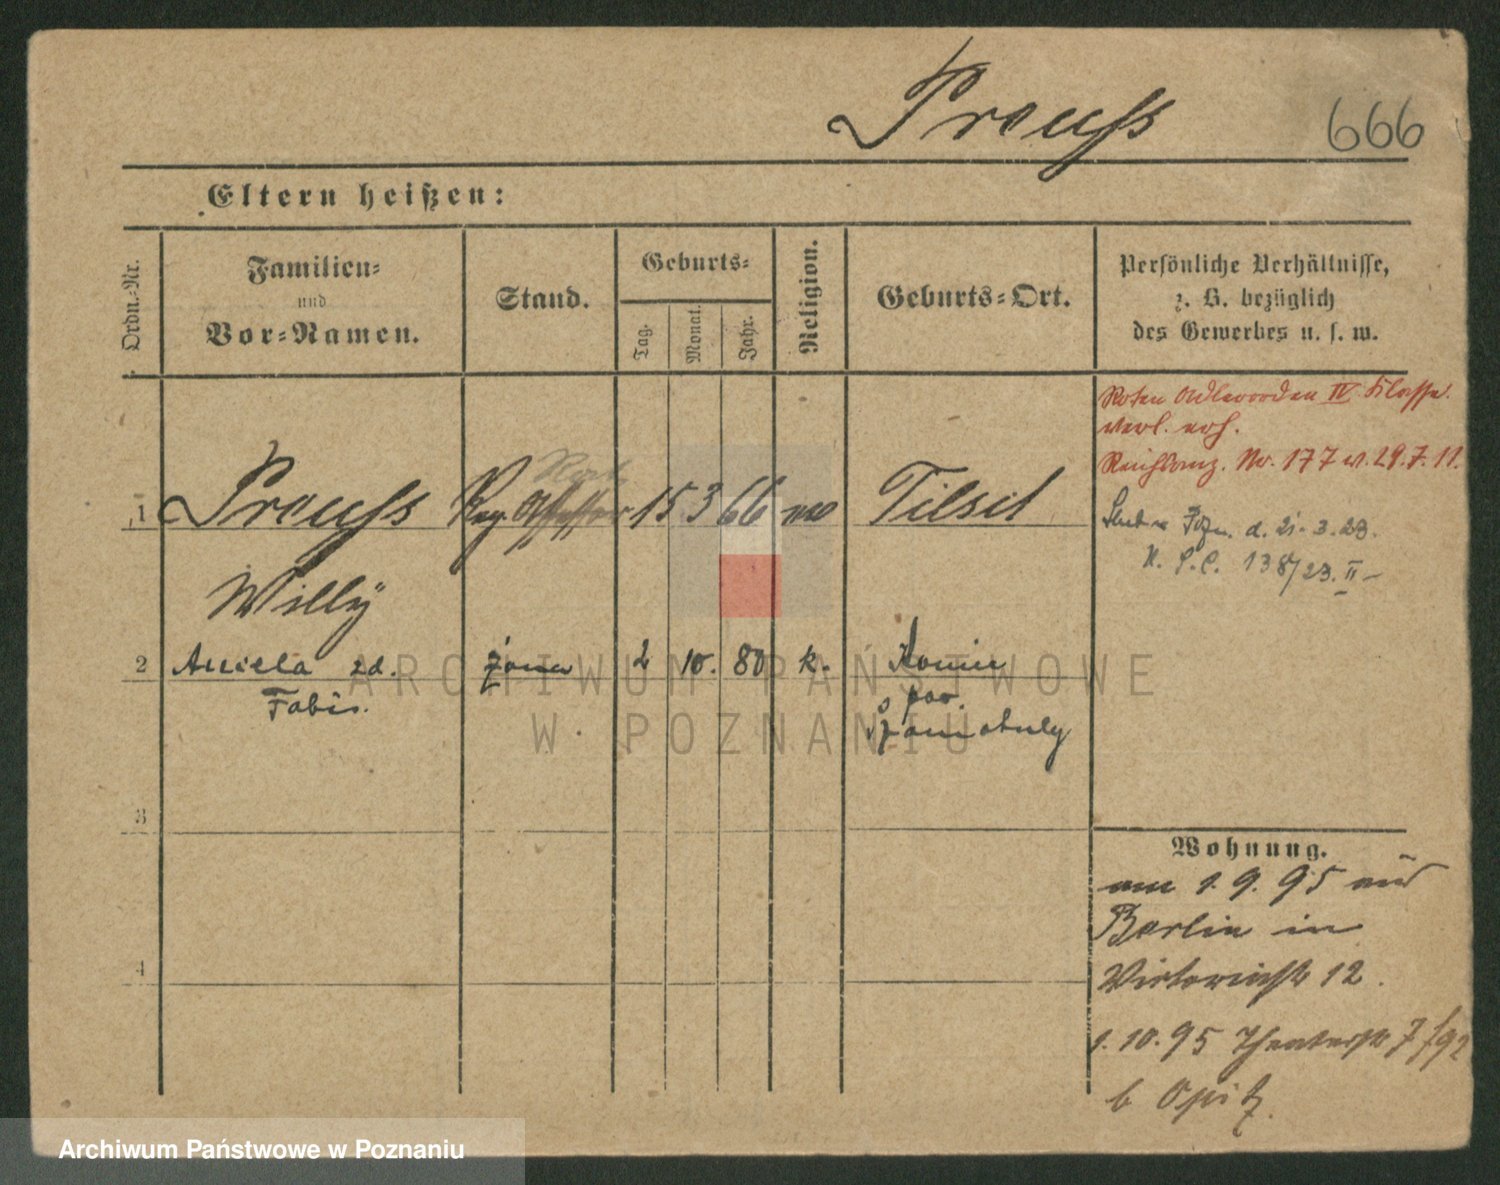 Preuss 666
Eltern heißen:
Ordn.-Nr.
Familien-
und
Vor-Namen.
Stand.
Geburts-
Tag.
Monat.
Jahr.
Religion.
Geburts-Ort.
Persönliche Verhältnisse,
z. B. bezüglich
des Gewerbes u. s. w.
Roten Adlerorden IV. Klasse
verl. erh.
Reichsanz. No. 177 v. 29.7.11.
1 Preuss Reg. Assessor 15 3 66 Tilsit
d. 21.3.23.
138/23. II
Willy
2 Aniela zd. żona 2 10. 80 k. Konin
Fabis.
pow.
Szamotuly
3
4
Wohnung.
am 1.9.95 aus
Berlin in
Victoriastr 12.
1.10.95 Theaterstr 7
b Opitz
ARCHIWUM PAŃSTWOWE
W POZNANIU
Archiwum Państwowe w Poznaniu